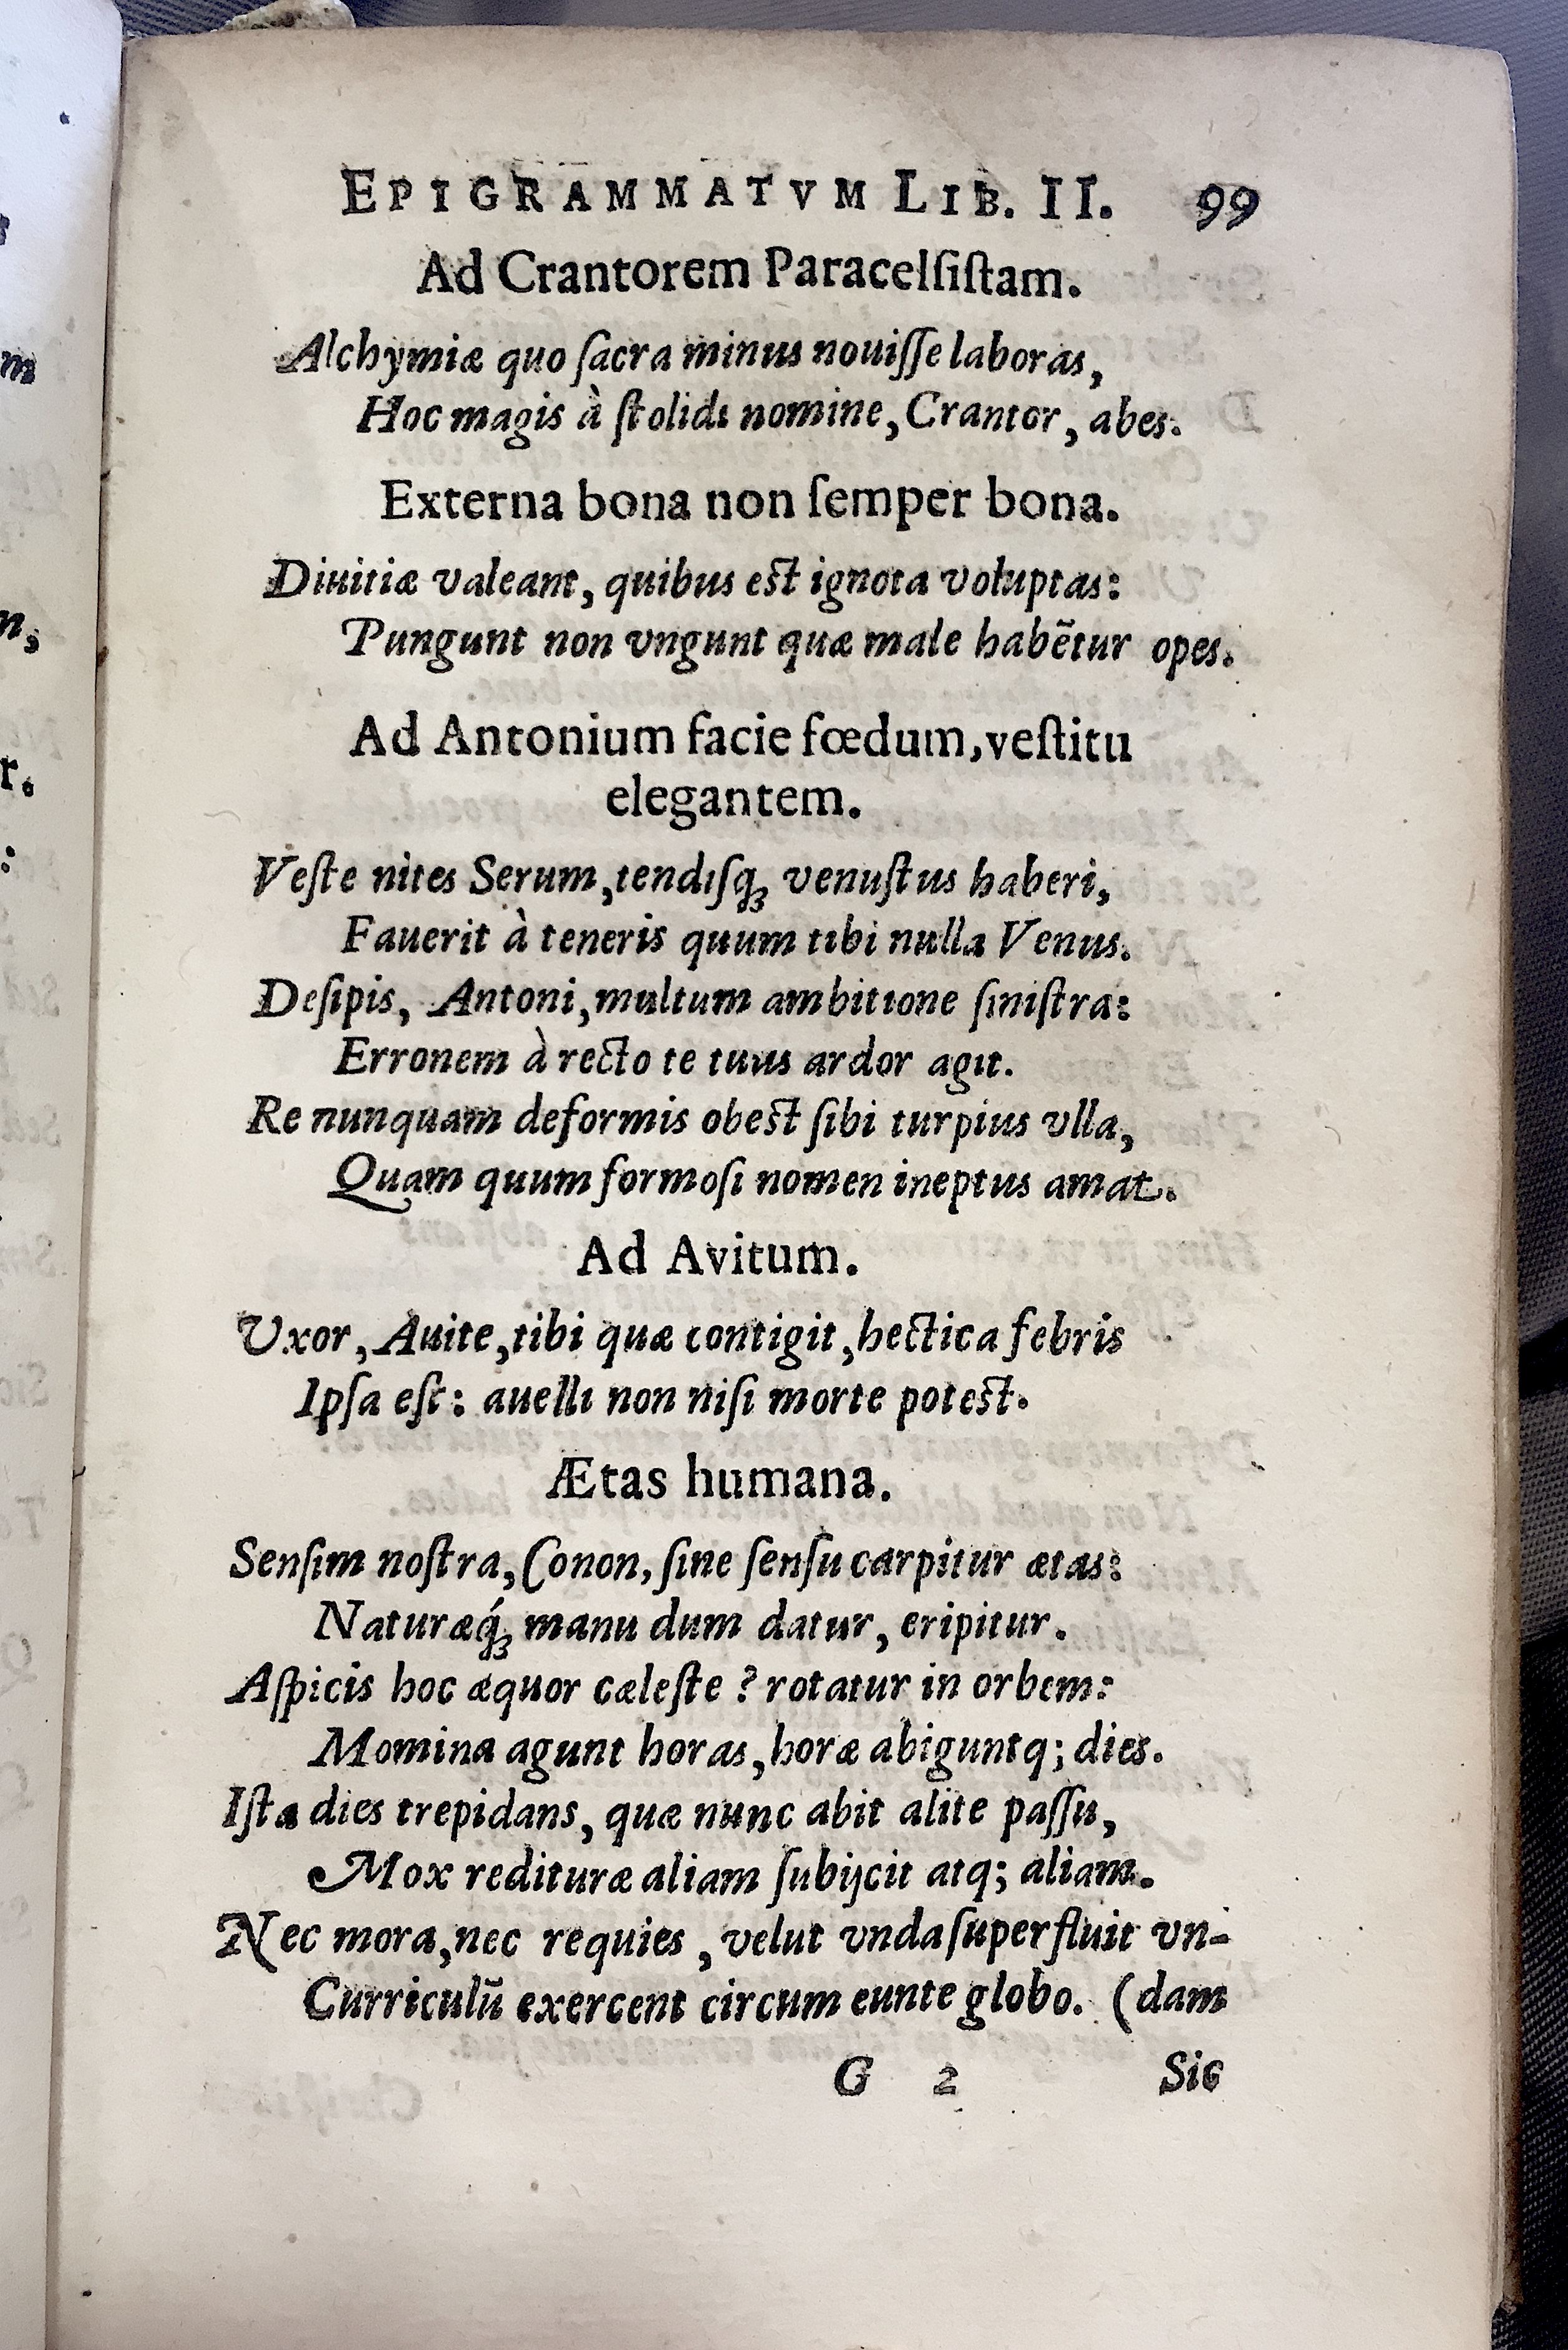 EPIGRAMMATVM LIB. II. 99
Ad Crantorem Paracelſiſtam.
Alchymiæ quo ſacra minus nouiſſe laboras,
Hoc magis à ſtolidi nomine, Crantor, abes.
Externa bona non ſemper bona.
Diuitiæ valeant, quibus est ignota voluptas:
Pungunt non vngunt quæ male habẽtur opes.
Ad Antonium facie fœdum, veſtitu
elegantem.
Veſte nites Serum, tendiſq; venuſtus haberi,
Fauerit à teneris quum tibi nulla Venus.
Deſipis, Antoni, multum ambitione ſiniſtra:
Erronem à recto te tuus ardor agit.
Re nunquam deformis obest ſibi turpius vlla,
Quam quum formoſi nomen ineptus amat.
Ad Avitum.
Vxor, Auite, tibi quæ contigit, hectica febris
Ipſa eſt: auelli non niſi morte potest.
Ætas humana.
Senſim noſtra, Conon, ſine ſenſu carpitur ætas:
Naturæq́; manu dum datur, eripitur.
Aſpicis hoc æquor cæleſte? rotatur in orbem:
Momina agunt horas, horæ abiguntq; dies.
Iſta dies trepidans, quæ nunc abit alite paſſu,
Mox redituræ aliam ſubijcit atq; aliam.
Nec mora, nec requies, velut vnda ſuperfluit vn-
Curriculũ exercent circum eunte globo. (dam
G 2 Sic